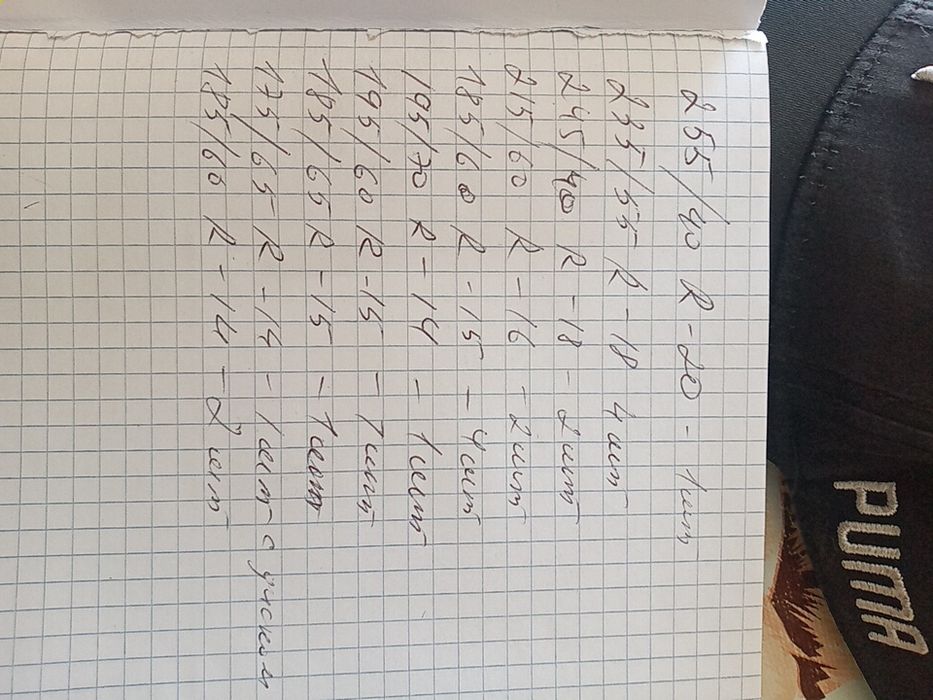 255/40 R-20 - 1шт
235/55 R-18 4шт
245/40 R-18 - 2шт
215/60 R-16 - 2шт
185/60 R-15 - 4шт
195/70 R-14 - 1шт
195/60 R-15 - 1шт
185/65 R-15 - 1шт
175/65 R-14 - 1шт с
185/60 R-14 - 2шт
PUMA